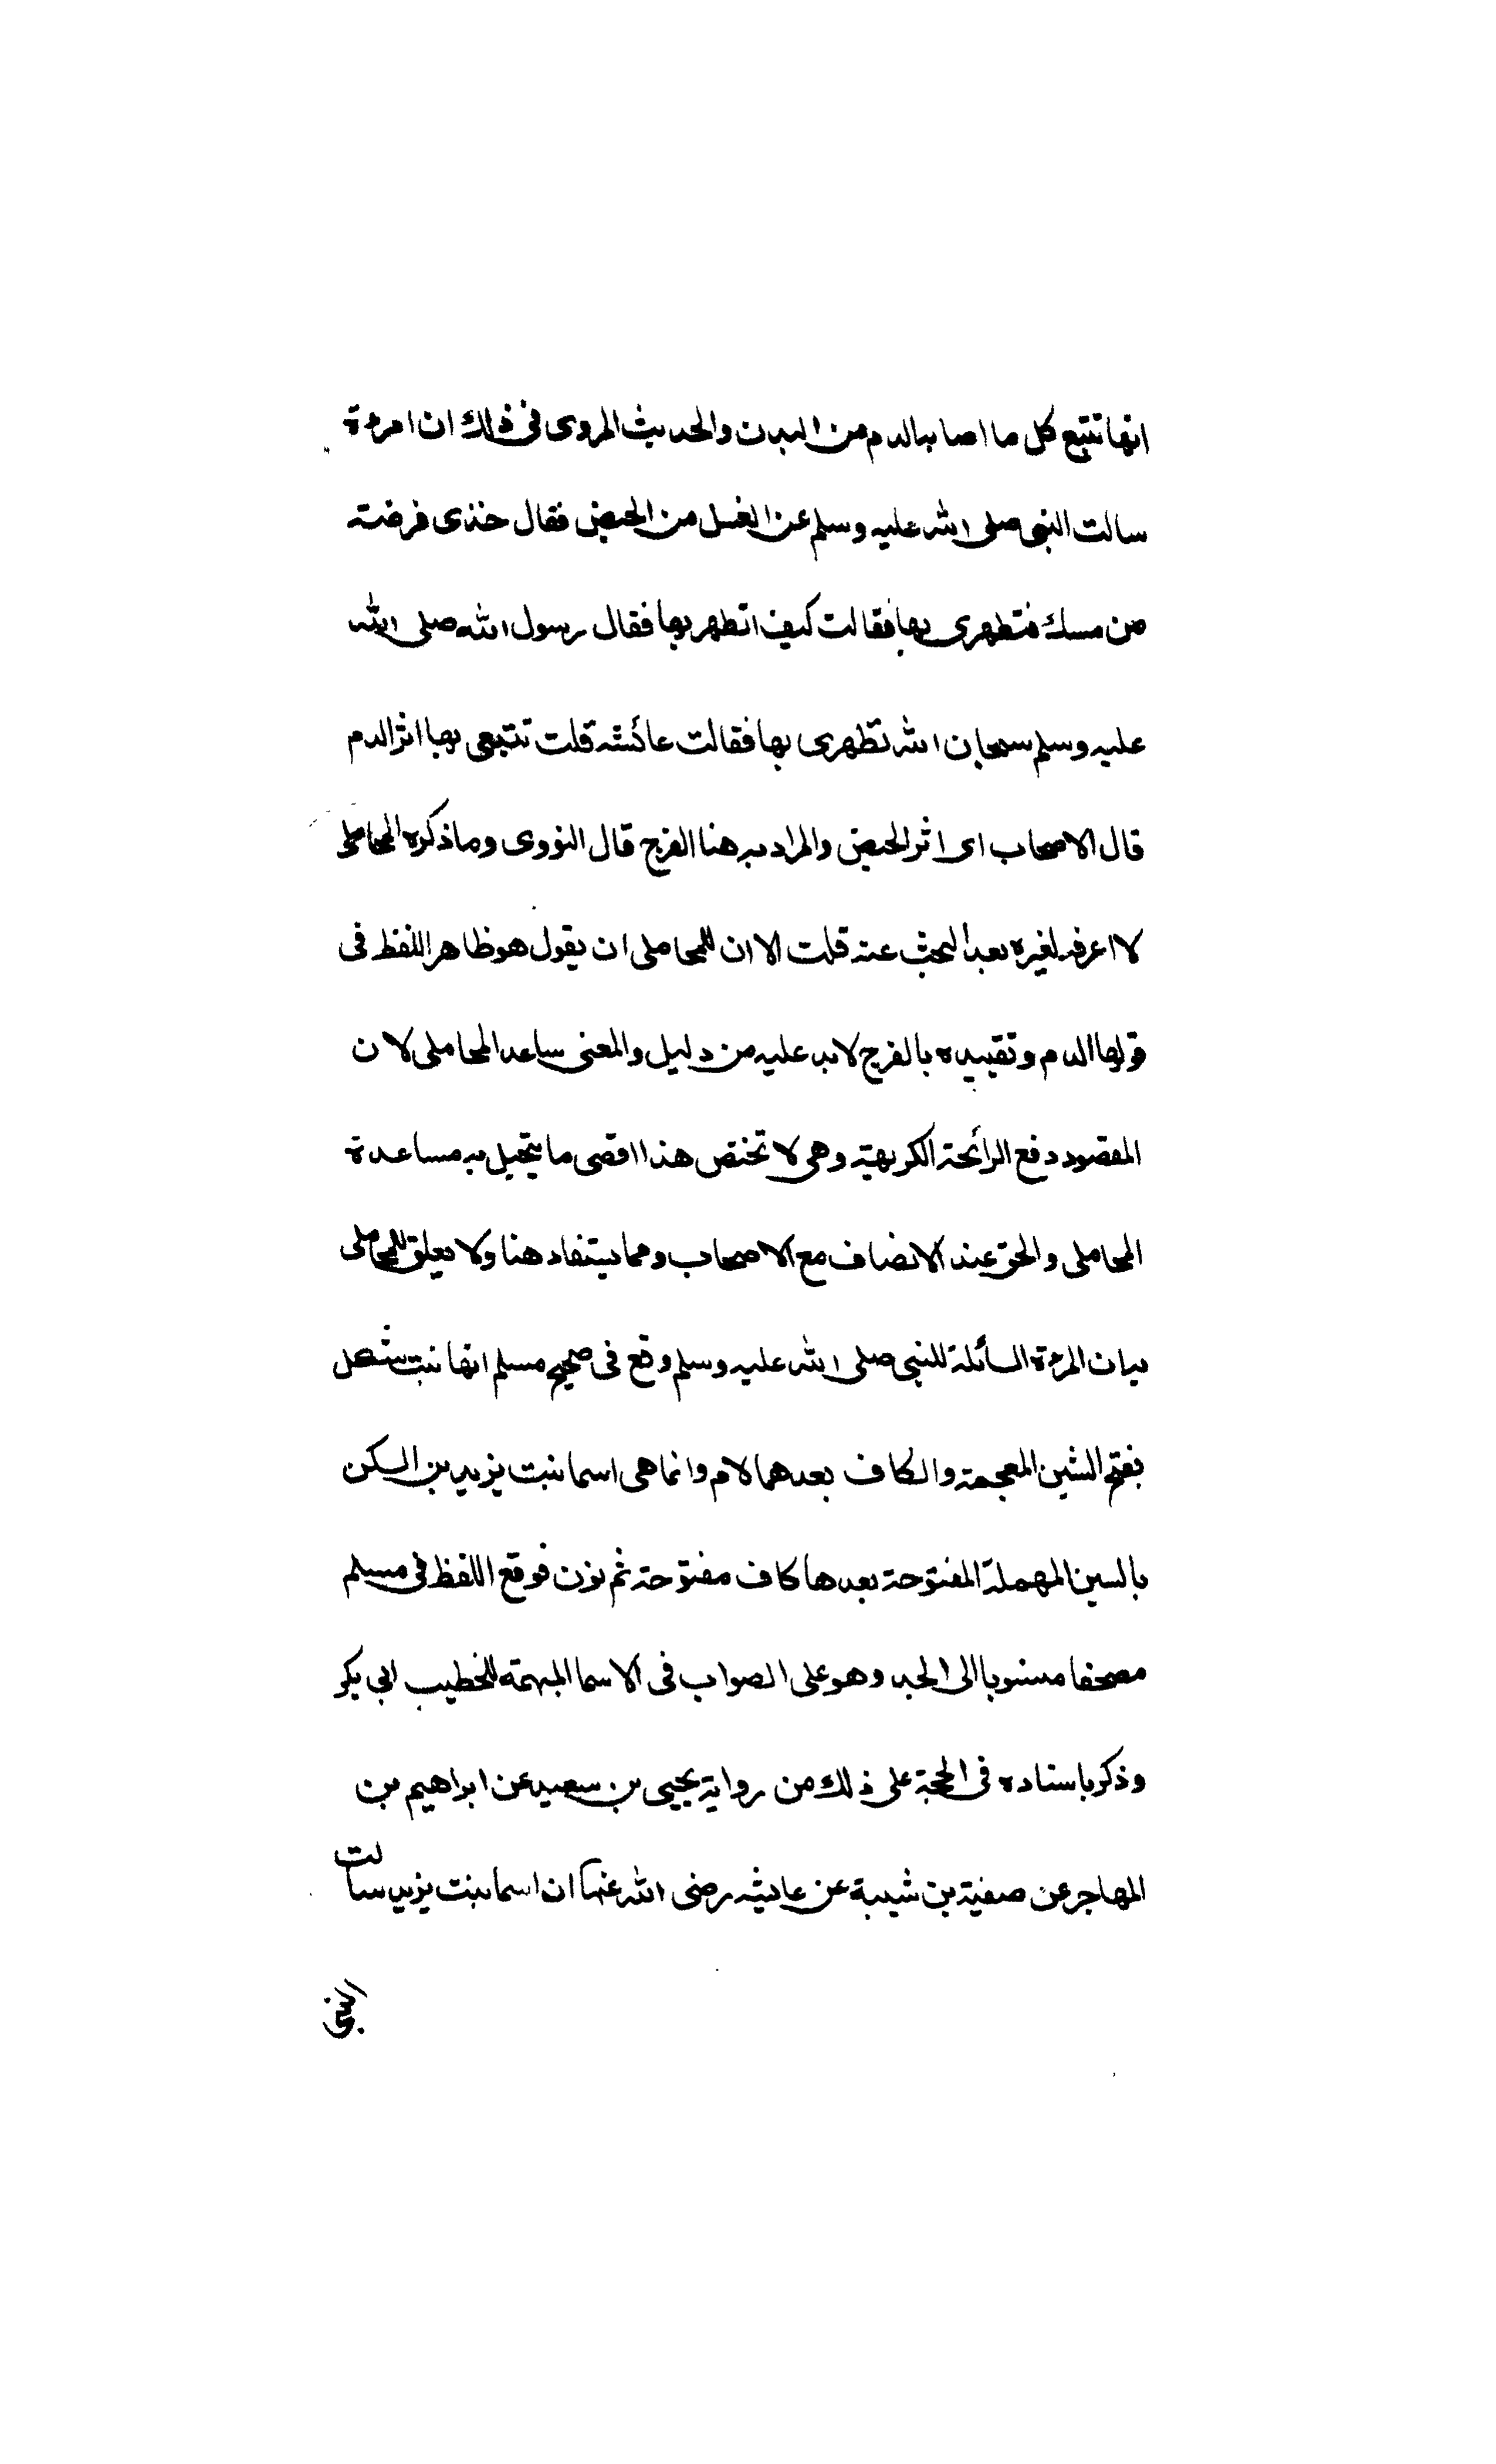 انها تتبع كل ما اصابه الدم من البدن والحديث المروى فى ذلك ان امرءة
سالت النبى صلى الله عليه وسلم عن الغسل من الحيض فقال خذى فرضته
من مسك فتطهرى بها فقالت كيف اتطهر بها فقال رسول الله صلى الله
عليه وسلم سبحان الله تطهرى بها فقالت عائشه قلت تتبعى بها اثر الدم
قال الاصحاب اى اثر الحيض والمراد به هنا الفرج قال النووى وما ذكره المحاملى
لا اعرفه لغيره بعد البحث عنه قلت الا ان للمحاملى ان يقول هو ظاهر اللفظ فى
قولها الدم وتقييده بالفرج لابد عليه من دليل والمعنى ساعد المحاملى لان
المقصود دفع الرائحة الكريهة وهى لا تختص هذا اقصى ما يتخيل به مساعدة
المحاملى والحق عند الانصاف مع الاصحاب ومما يستفاد هنا ولا تعلق للمحاملى
بيان المرءة السائلة للنبى صلى الله عليه وسلم وقع فى صحيح مسلم انها بنت شكل
بفتح الشين المعجمة والكاف بعدهما لام وانما هى اسما بنت يزيد بن السكن
بالسين المهملة المفتوحة بعدها كاف مفتوحة ثم نون فوقع اللفظ فى مسلم
مصحفا منسوبا الى الجد وهو على الصواب فى الاسما المبهمة للخطيب ابى بكر
وذكر باسناده فى الحجة على ذلك من رواية يحيى بن سعيد عن ابراهيم بن
المهاجر عن صفية بن شيبة عن عايشه رضى الله عنها ان اسما بنت يزيد سالت
النبى